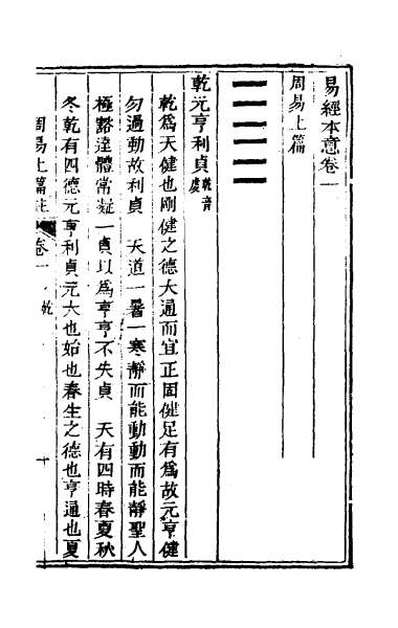 易經本意卷一
周易上篇
乾元亨利貞乾音虔
乾爲天健也剛健之德大通而宜正固健足有爲故元亨健
勿過動故利貞 天道一暑一寒靜而能動動而能靜聖人
極豁達體常凝一貞以爲亨亨不失貞 天有四時春夏秋
冬乾有四德元亨利貞元大也始也春生之德也亨通也夏
周易上篇註 卷一 乾